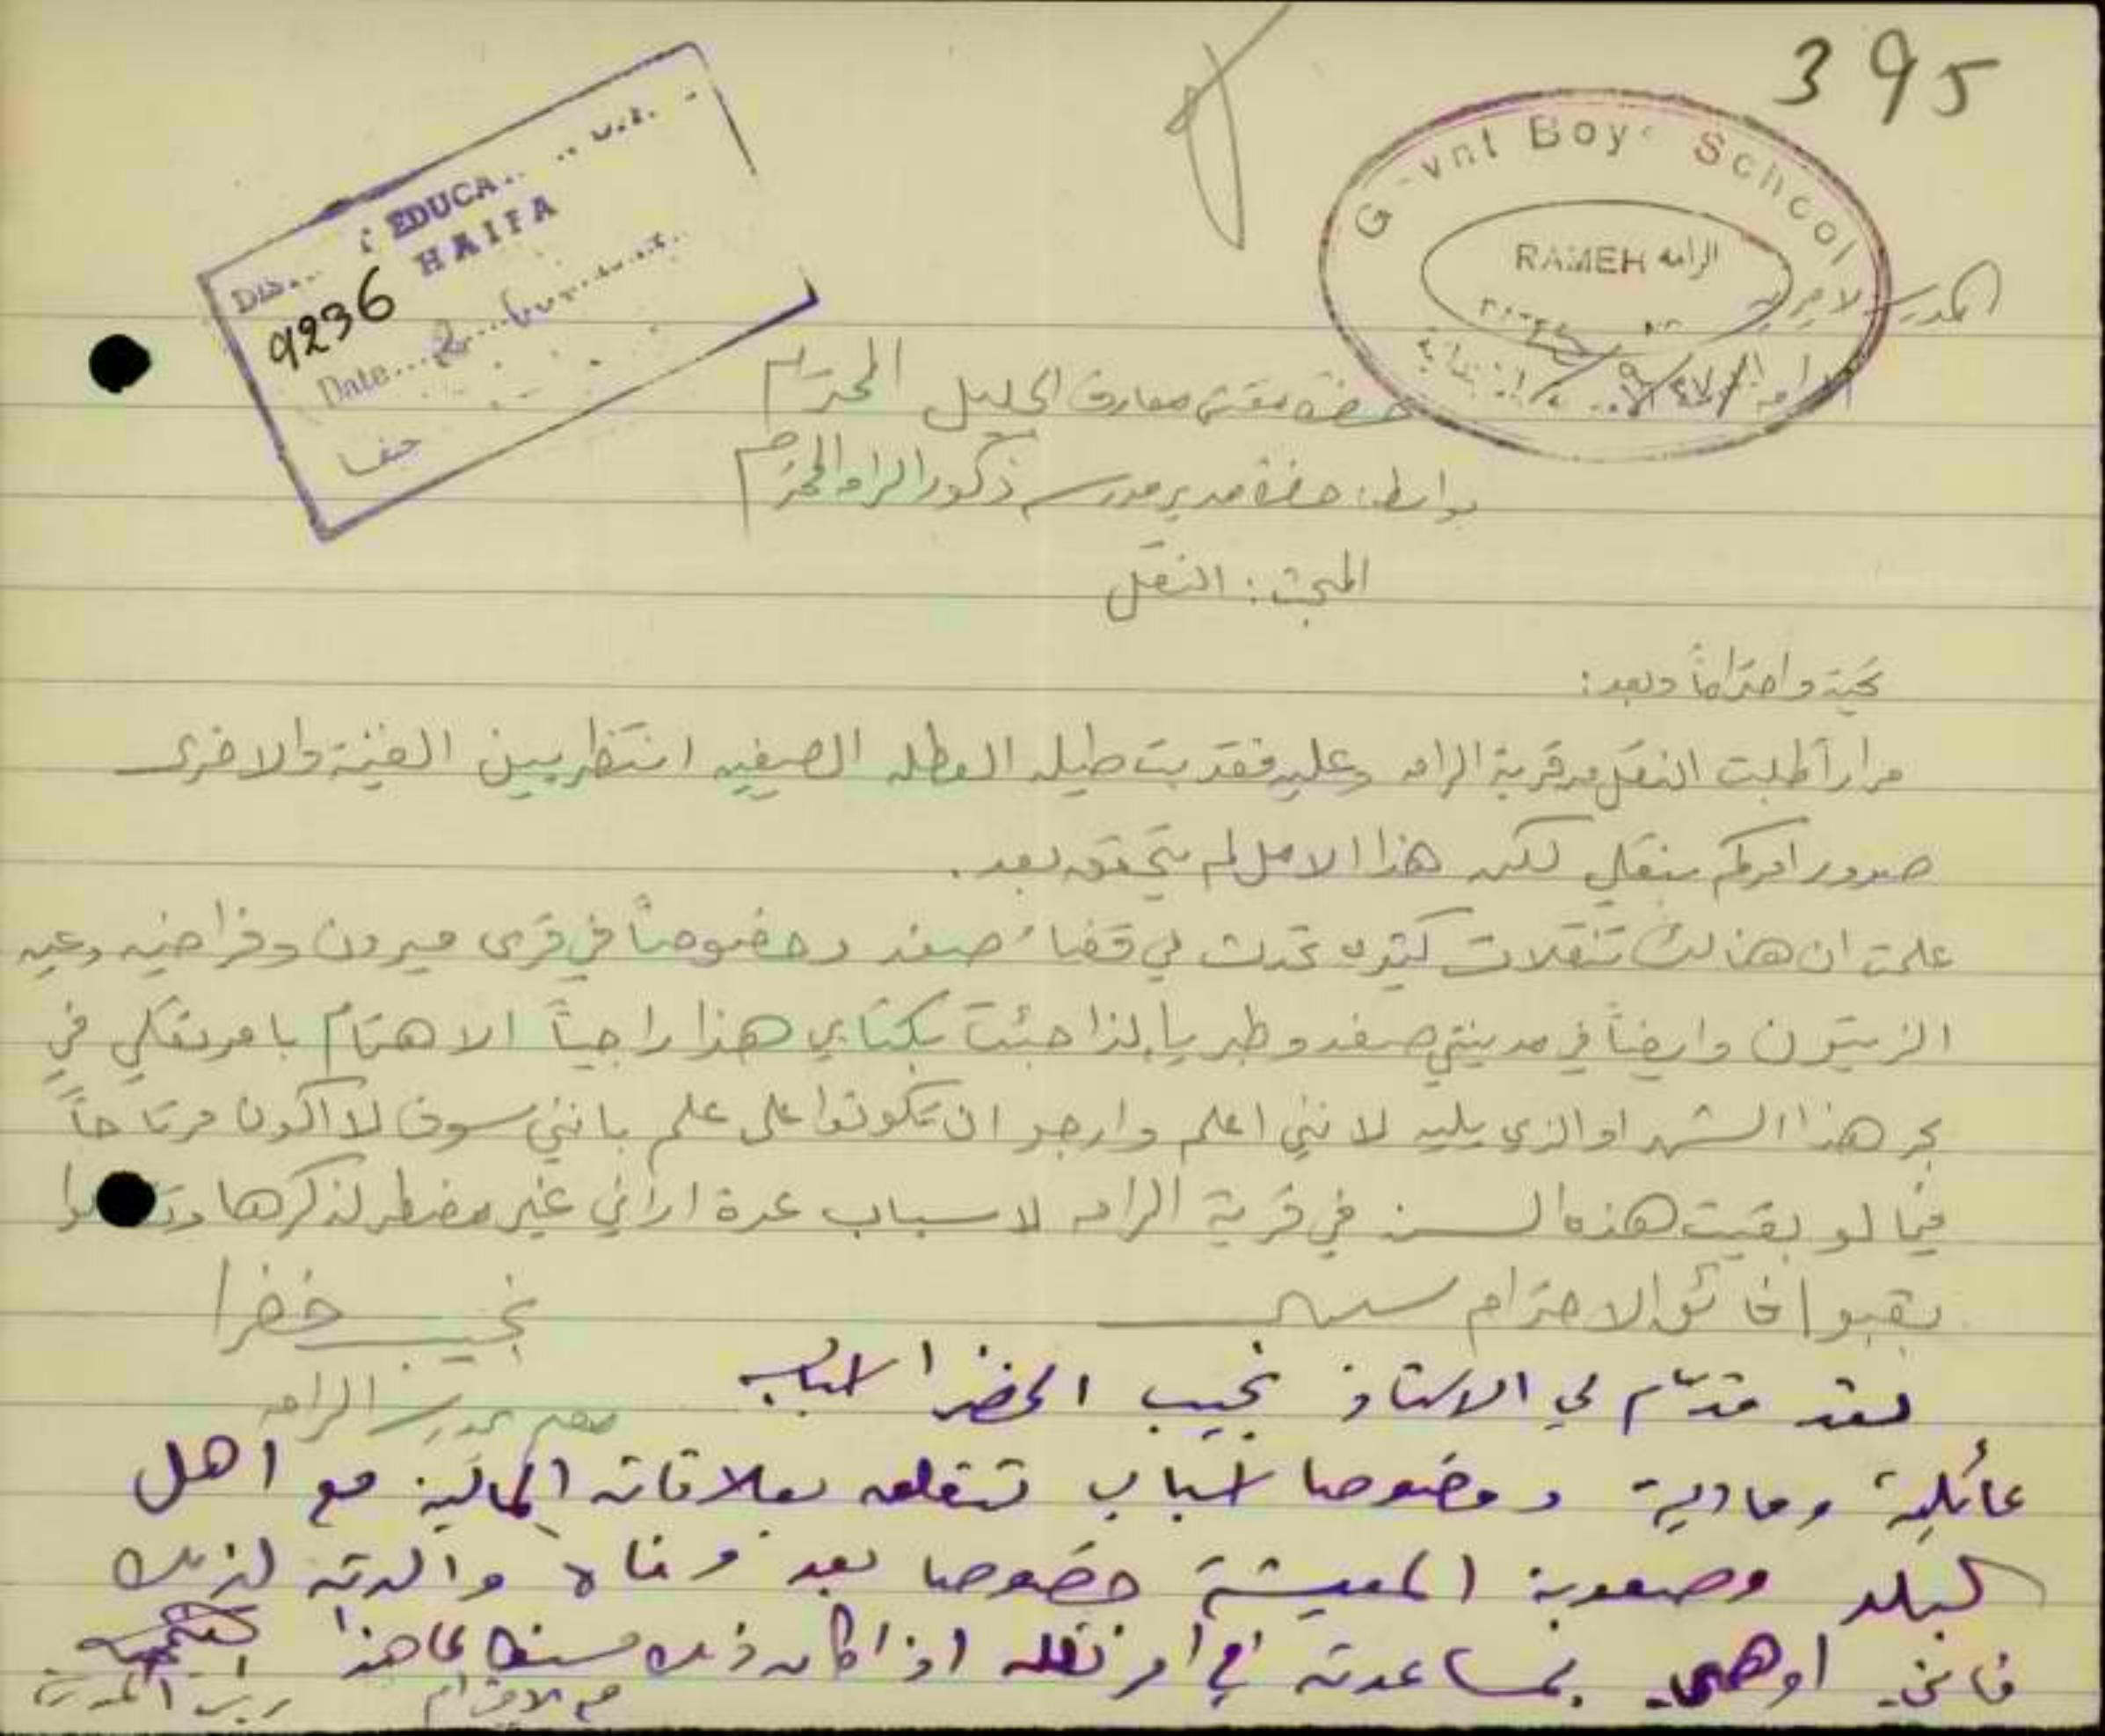 395
Govnt Boys School
RAMEH الرامه
EDUCA
HAIFA
9236
Date
حيفا
المدرسة الاميرية
حضرة مفتش معارف الجليل المحترم
بواسطة حضرة مدير مدرسة ذكور الرامه المحترم
المبحث: النقل
تحية واحتراماً وبعد:
مراراً طلبت النقل من قرية الرامه وعليه فقد بت طيله العطله الصيفيه انتظر بين الفينة والاخرى
صدور امركم بنقلي لكن هذا الامل لم يتحقق بعد.
علمت ان هنالك تنقلات كثيره تحدث في قضاء صفد وخصوصاً في قرى ميرون وفراضيه وعين
الزيتون وايضاً في مدينتي صفد وطبريا لذا جئت بكتابي هذا راجياً الاهتمام بامر نقلي في
بحر هذا الشهر او الذي يليه لانني اعلم وارجو ان تكونوا على علم بانني سوف لا اكون مرتاحاً
فيما لو بقيت هذه السنة في قرية الرامه لاسباب عدة اراني غير مضطر لذكرها
بقبول فائق الاحترام سيدي
نجيب خضرا
معلم بمدرسة الرامه
لقد قدم لي الاستاذ نجيب الخضرا اسباب
عائلية ومادية وخصوصا اسباب تتعلق بعلاقاته المالية مع اهل
البلد وصعوبة المعيشة خصوصا بعد وفاة والدته لذلك
فانني اوصي بمساعدته في امر نقله اذا كان ذلك
مع الاحترام
المدرسة